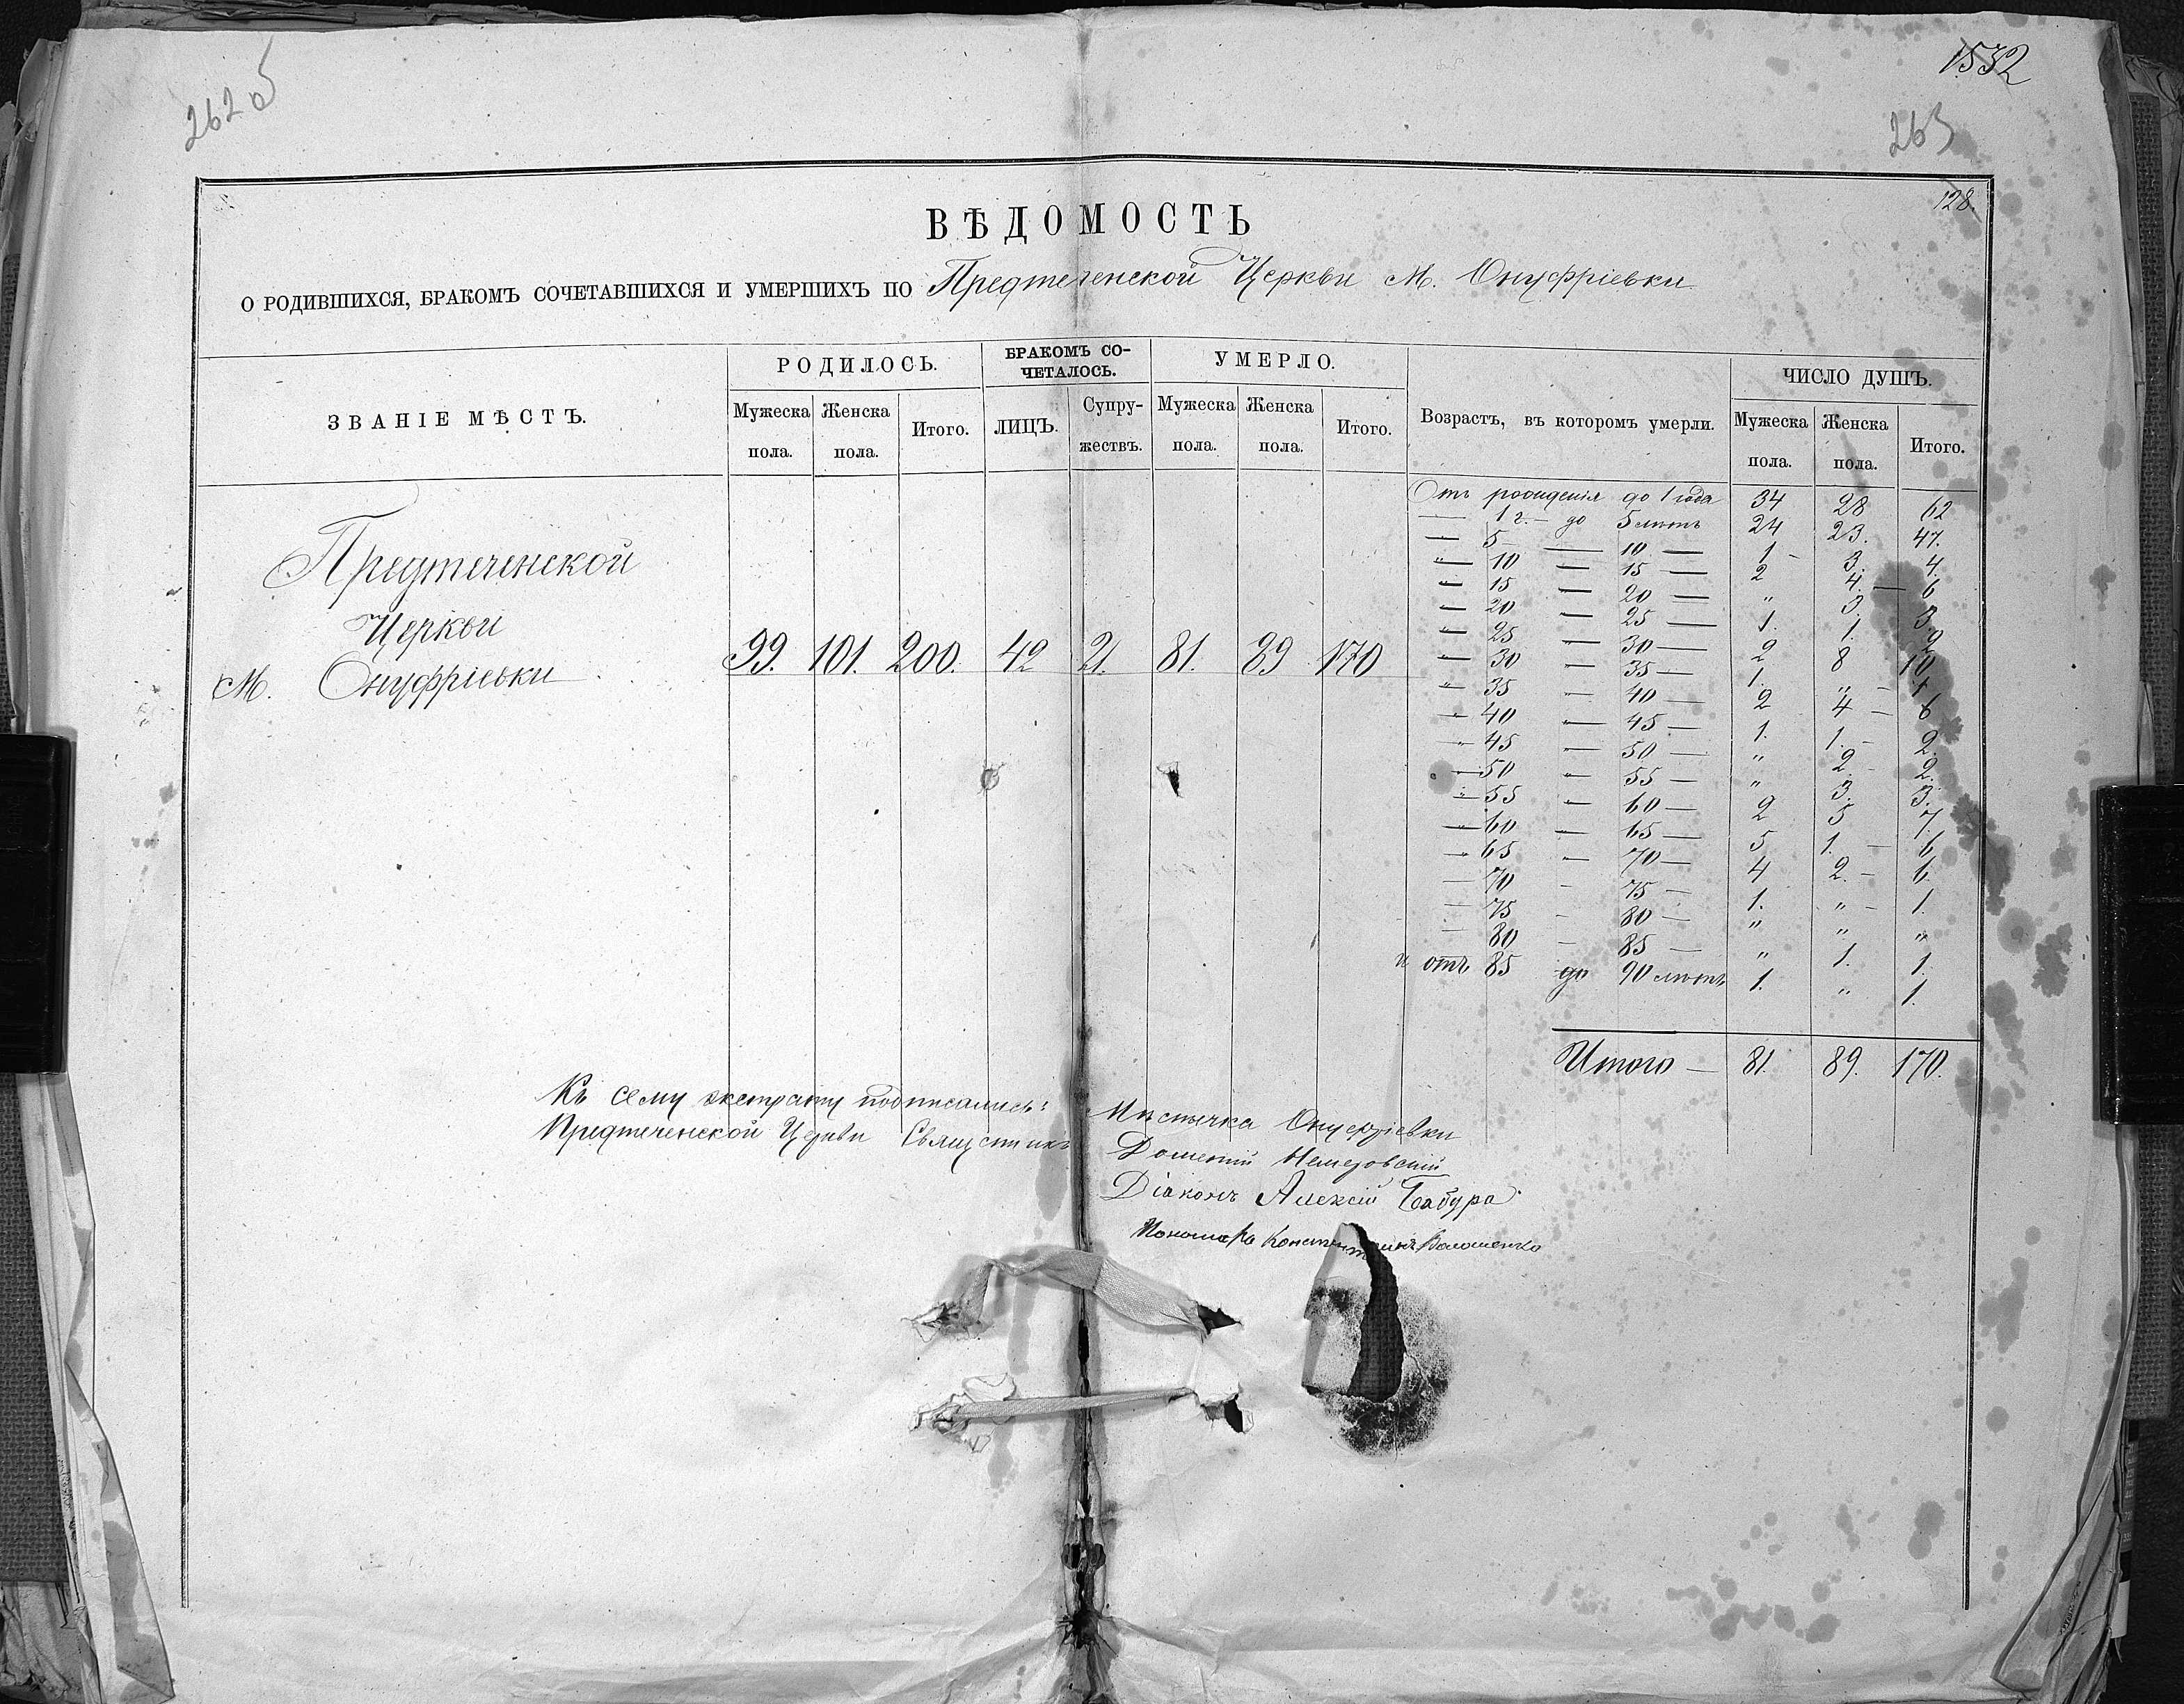 262 об
1532
263
128.
ВѢДОМОСТЬ
О РОДИВШИХСЯ, БРАКОМЪ СОЧЕТАВШИХСЯ И УМЕРШИХЪ ПО Предтеченской Церкви М. Онуфріевки
ЗВАНІЕ МѢСТЪ. РОДИЛОСЬ. БРАКОМЪ СО-
ЧЕТАЛОСЬ. УМЕРЛО. Возрастъ, въ которомъ умерли. ЧИСЛО ДУШЪ.
Мужеска пола. Женска пола. Итого. ЛИЦЪ. Супру-
жествъ. Мужеска пола. Женска пола. Итого. Мужеска пола. Женска пола. Итого.
Предтеченской
Церкви
М. Онуфріевки 99. 101. 200. 42 21. 81. 89 170
Отъ рожденія до 1 года 34 28 62
— 1 г. — до 5 лѣтъ 24 23. 47.
— 5 — 10 — 1 — 3. 4.
" — 10 — 15 — 2 4. — 6
" — 15 — 20 — " 3 3.
" — 20 — 25 — 1. 1. 2
" — 25 — 30 — 2 8 10
" — 30 — 35 — 1. " — 1
" — 35 — 40 — 2 4 — 6
" — 40 — 45 — 1. 1. — 2.
" — 45 — 50 — " 2 — 2.
" — 50 — 55 — " 3. 3.
" — 55 — 60 — 2 5 7.
" — 60 — 65 — 5 1. — 6
" — 65 — 70 — 4 2. — 6.
— 70 — 75 — 1. " — 1.
— 75 — 80 — " " "
— 80 — 85 — " 1. 1.
и отъ 85 до 90 лѣтъ 1. " 1.
Итого — 81. 89. 170.
Къ сему экстракту подписались:
Предтеченской Церкви Священникъ
Мѣстечка Онуфріевки
Діаконъ Алексій Бабура
Пономарь Константинъ